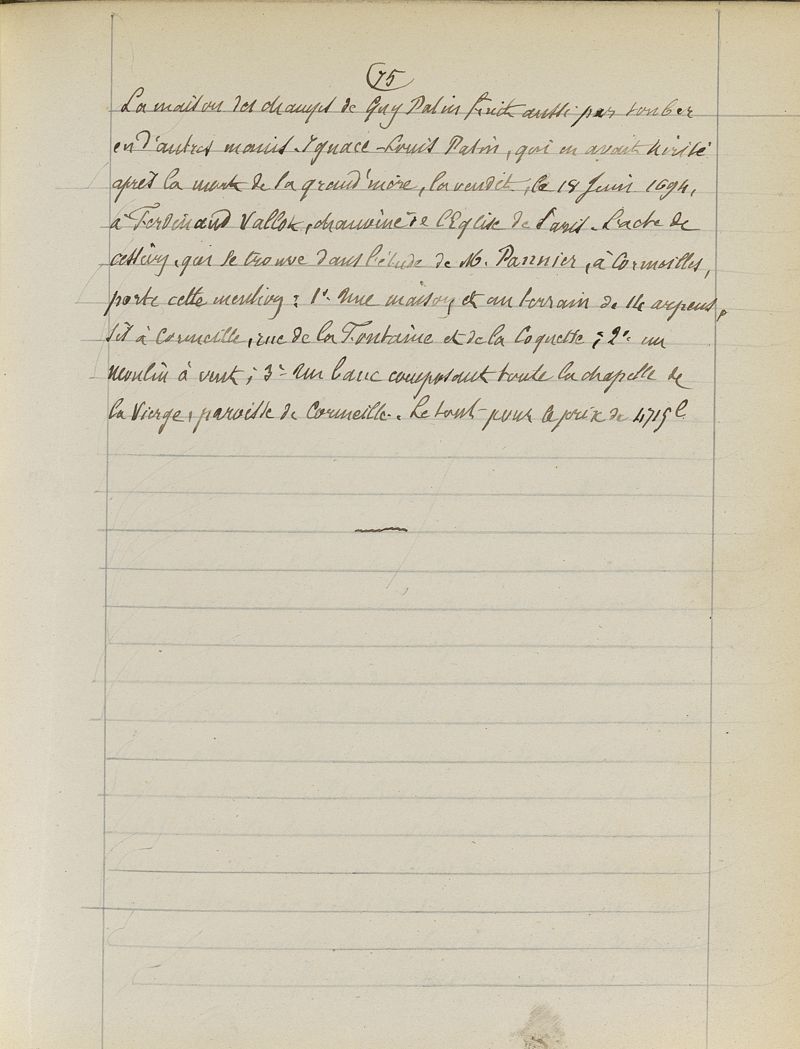 75
La maison des champs de Guy Patin finit aussi par tomber
en d'autres mains. Ignace-Louis Patin, qui en avait hérité
après la mort de la grand'mère, la vendit, le 18 Juin 1694,
à Ferdinand Vallot, chanoine de l'Eglise de Paris. L'acte de
cession, qui se trouve dans l'étude de M. Pannier, à Cormeilles,
porte cette mention : 1° Une maison et un terrain de arpens,
sis à Cormeille, rue de la Fontaine et de la Coquette ; 2° un
moulin à vent ; 3° Un banc composant toute la chapelle de
la Vierge, paroisse de Cormeille. Le tout pour le prix de 4715 l